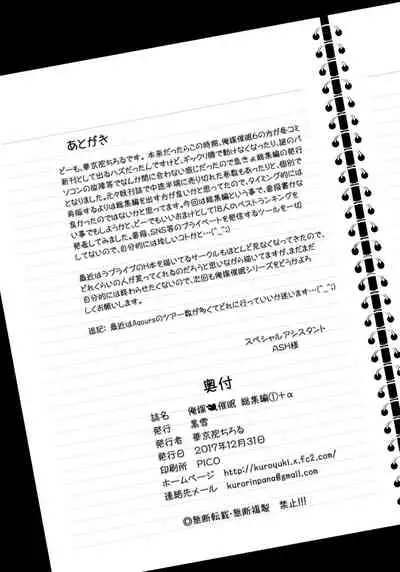 あとがき
どーも、華京院ちろるです。本来だったらこの時期、俺嫁催眠6の方が冬コミ
新刊として出るハズだったんですけど、ギックリ腰で動けなくなったり、謎のパ
ソコンの故障等でなんか間に合わない感じだったので急きょ総集編の発行
となりました。元々既刊誌で中途半端に売り切れた巻数もあったりと、個別で
再販するよりは総集編を出す方が良いかと思ってたので、タイミング的には
良かったのではないかと思ってます。今回は総集編という事で、普段書かな
い事でもしようかと、どーでもいいおまけとして推しの人のベストランキングを
発表してみました。普段、SNS等のプライベートを発信するツールを一切
してないので、自分的には珍しいコトかと…(^_^;)
最近はラブライブのH本を描いてるサークルもほとんど見なくなってきたので、
どれくらいの人が買ってくれるのだろうと思いながら描いてますが、まだまだ
自分的には終わらせたくないので、次回も俺嫁催眠シリーズをどうかよろ
しくお願いします。
追記：最近はAqoursのツアー数が多くてどれに行っていいか迷います…(^_^;)
スペシャルアシスタント
ASH様
奥付
誌名 俺嫁催眠 総集編①+α
発行 黒雪
発行者 華京院ちろる
発行日 2017年12月31日
印刷所 PICO
ホームページ http://kuroyuki.x.fc2.com/
連絡先メール kurorinpana@gmail.com
◎無断転載・無断複製 禁止!!!